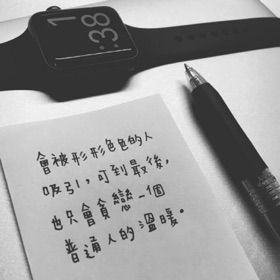 1:38
會被形形色色的人
吸引，可到最後，
也只會貪戀一個
普通人的溫暖。